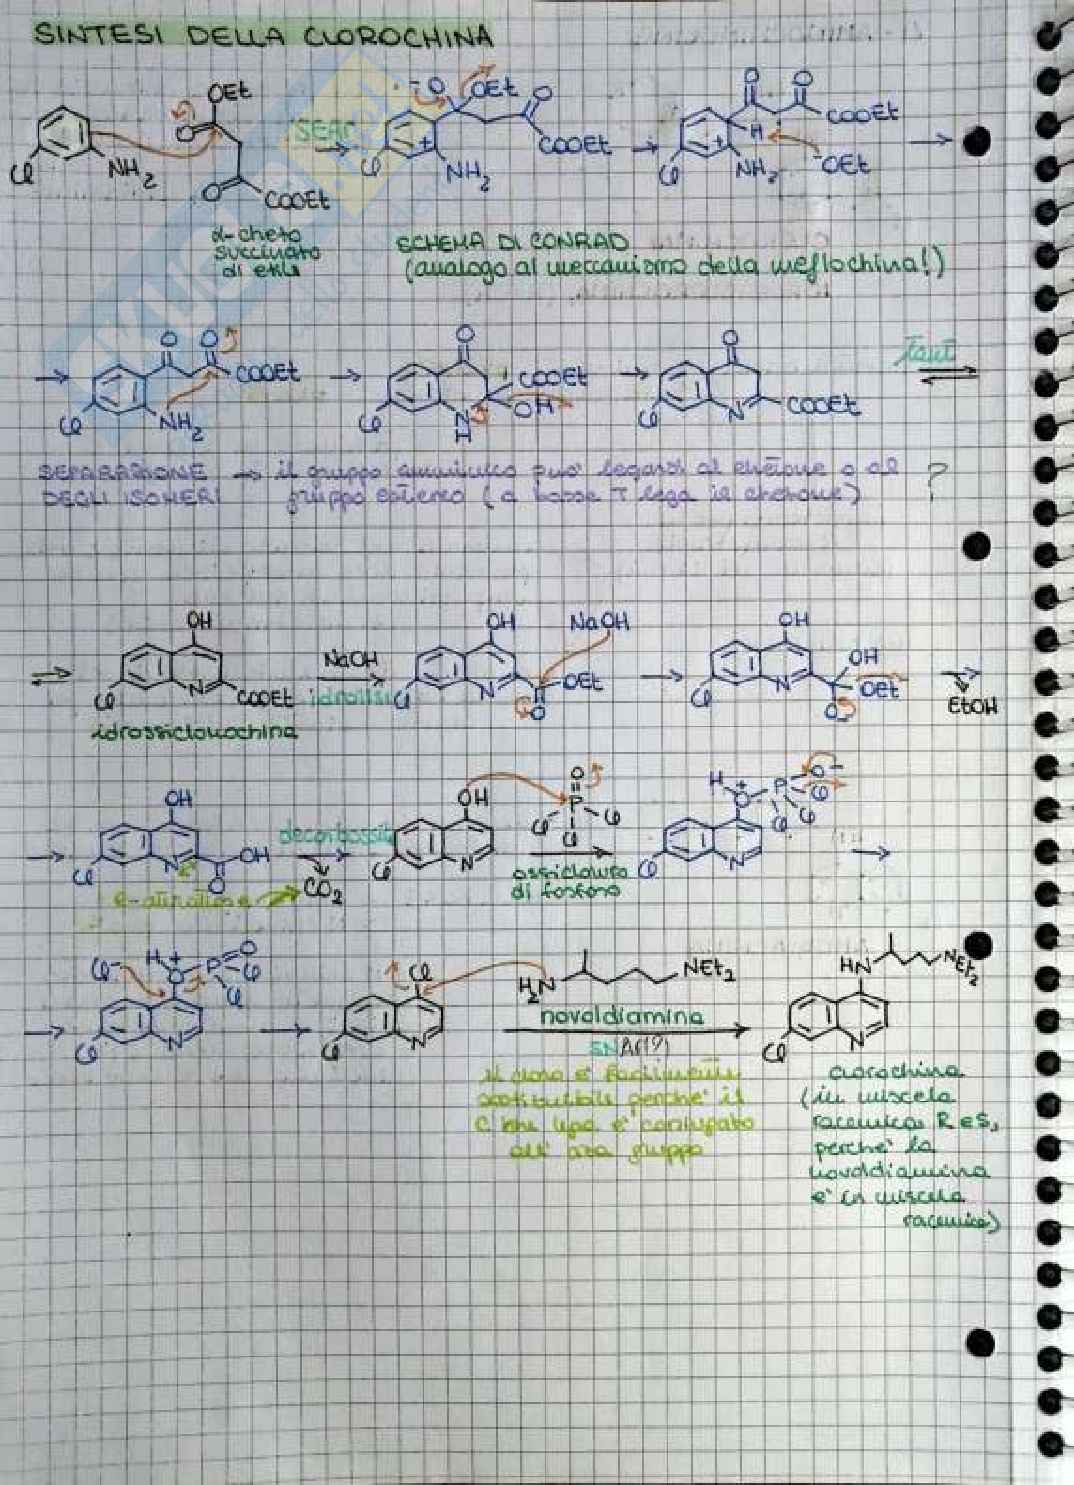 SINTESI DELLA CLOROCHINA
OEt
O
Cl
NH2
O
COOEt
α-cheto
succinato
di etile
SEAr
-O
OEt
O
COOEt
Cl
+
NH2
O
O
COOEt
H
Cl
+
NH2
-OEt
SCHEMA DI CONRAD
(analogo al meccanismo della meflochina!)
O
O
COOEt
Cl
NH2
O
COOEt
OH
Cl
N
H
O
Cl
N
COOEt
taut
SEPARAZIONE → il gruppo amminico può legarsi al chetone o al ?
DEGLI ISOMERI gruppo estereo (a bassa T lega il chetone)
OH
Cl
N
COOEt
idrossiclorochina
NaOH
idrolisi
OH
NaOH
Cl
N
OEt
O
OH
OH
Cl
N
OEt
O-
EtOH
OH
Cl
N
OH
O
decarbossil
CO2
OH
Cl
N
O
P
Cl
Cl
Cl
ossicloruro
di fosforo
H
+
O
P
O-
Cl
Cl
Cl
Cl
N
Cl-
H
+
O
P
O
Cl
Cl
Cl
N
Cl
Cl
N
H2N
NEt2
novoldiamina
SNAr(?)
il cloro è facilmente
sostituibile perché il
C che lega è coniugato
all' aza gruppo
HN
NEt2
Cl
N
clorochina
(in miscela
racemica R e S,
perché la
novoldiamina
è in miscela
racemica)